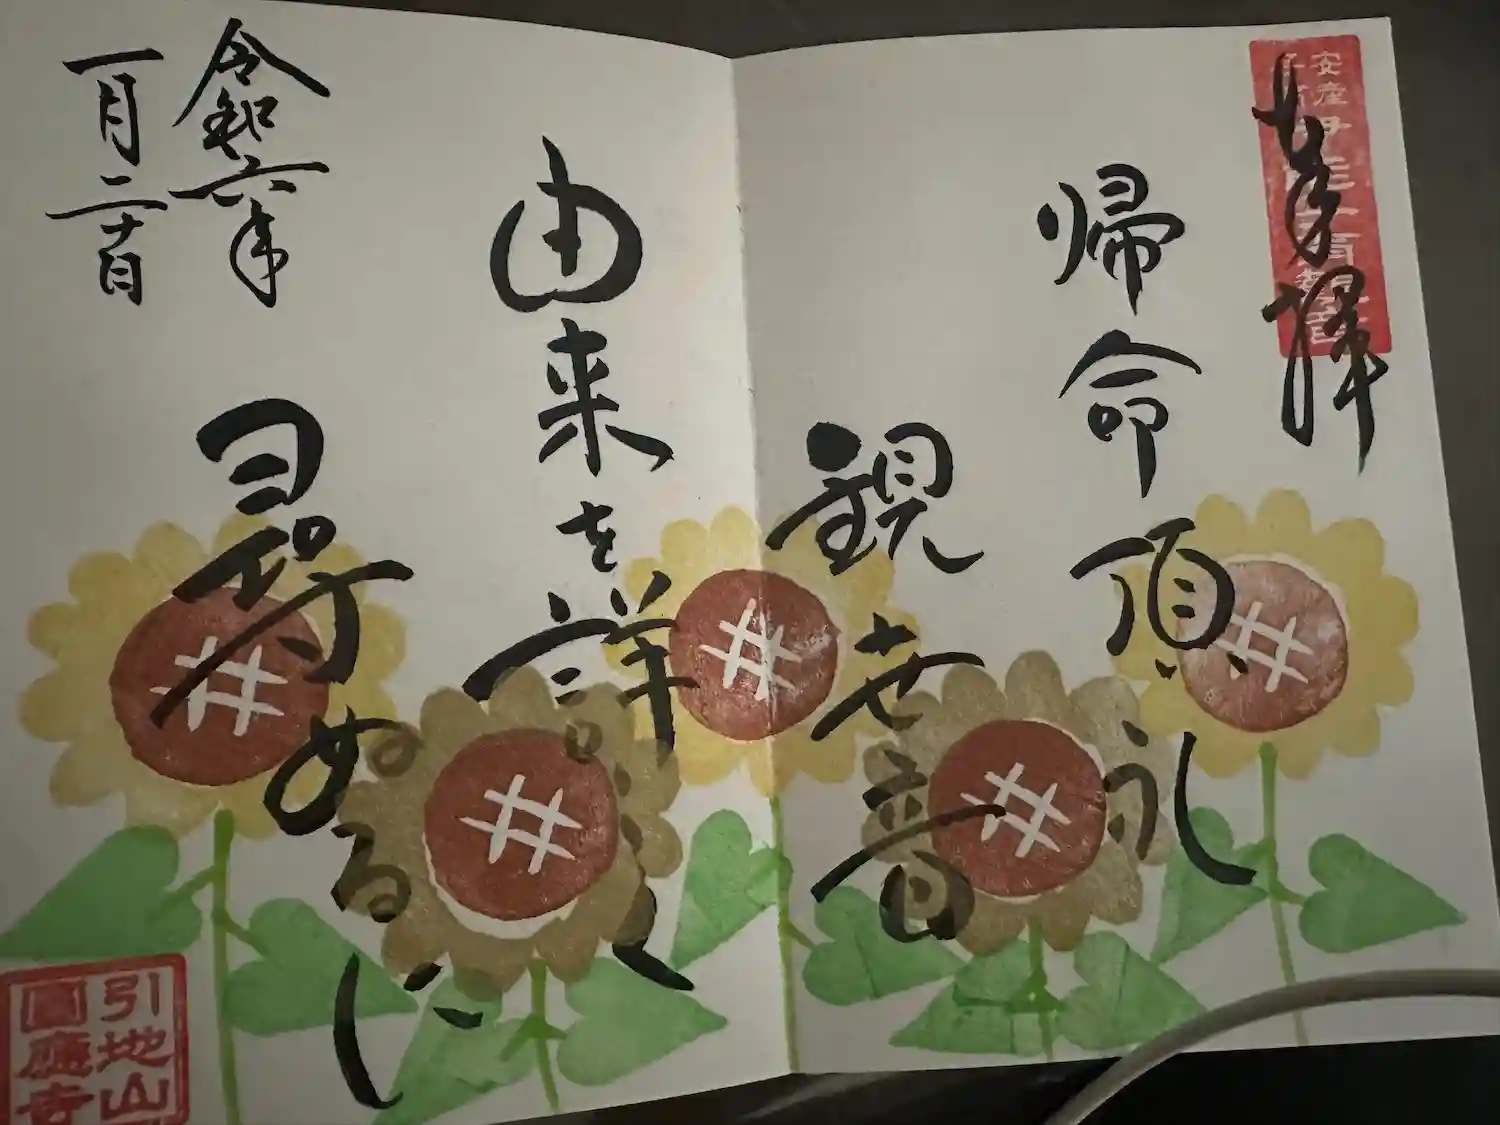 奉拝
安産
帰命頂礼
観世音
由来を詳しく
尋ぬるに
令和六年
一月二十日
引地山
圓應寺